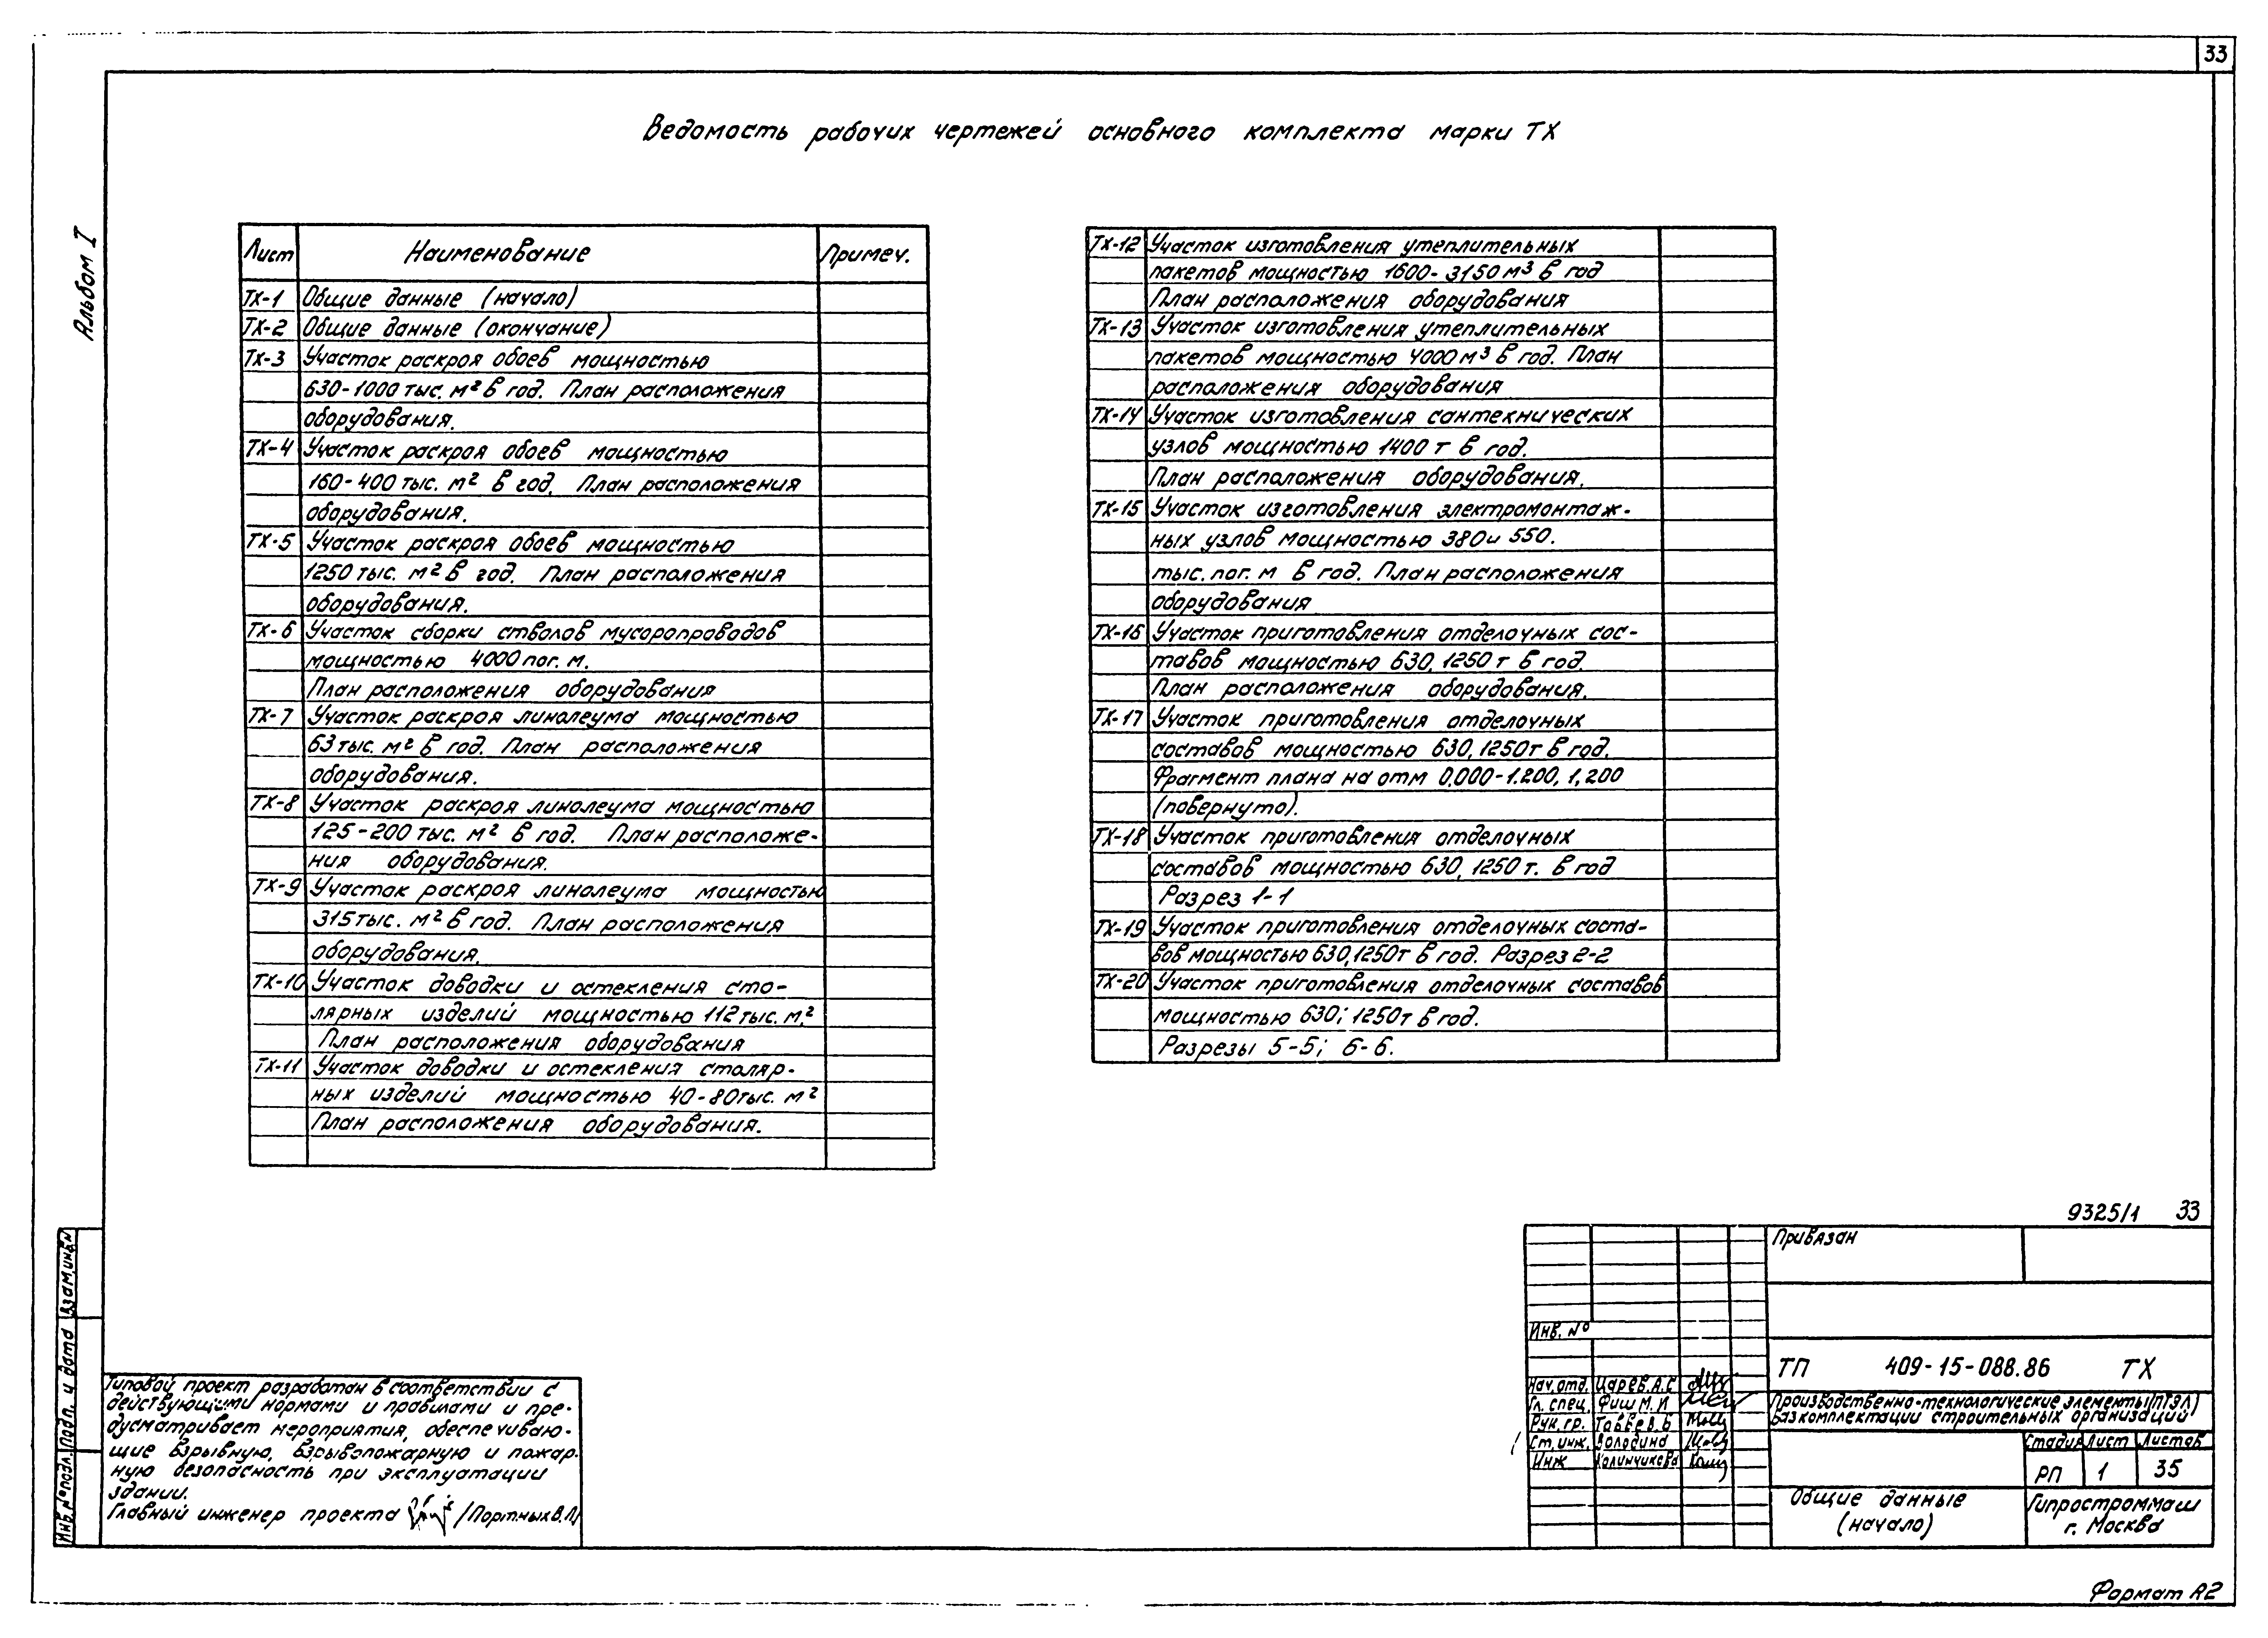 33
Ведомость рабочих чертежей основного комплекта марки ТХ
Альбом I
Лист Наименование Примеч.
ТХ-1 Общие данные (начало)
ТХ-2 Общие данные (окончание)
ТХ-3 Участок раскроя обоев мощностью
630-1000 тыс. м² в год. План расположения
оборудования.
ТХ-4 Участок раскроя обоев мощностью
160-400 тыс. м² в год. План расположения
оборудования.
ТХ-5 Участок раскроя обоев мощностью
1250 тыс. м² в год. План расположения
оборудования.
ТХ-6 Участок сборки стволов мусоропроводов
мощностью 4000 пог. м.
План расположения оборудования
ТХ-7 Участок раскроя линолеума мощностью
63 тыс. м² в год. План расположения
оборудования.
ТХ-8 Участок раскроя линолеума мощностью
125-200 тыс. м² в год. План расположе-
ния оборудования.
ТХ-9 Участок раскроя линолеума мощностью
315 тыс. м² в год. План расположения
оборудования.
ТХ-10 Участок доводки и остекления сто-
лярных изделий мощностью 112 тыс. м.²
План расположения оборудования
ТХ-11 Участок доводки и остекления столяр-
ных изделий мощностью 40-80 тыс. м²
План расположения оборудования.
ТХ-12 Участок изготовления утеплительных
пакетов мощностью 1600-3150 м³ в год
План расположения оборудования
ТХ-13 Участок изготовления утеплительных
пакетов мощностью 4000 м³ в год. План
расположения оборудования
ТХ-14 Участок изготовления сантехнических
узлов мощностью 1400 т в год.
План расположения оборудования.
ТХ-15 Участок изготовления электромонтаж-
ных узлов мощностью 380 и 550.
тыс. пог. м в год. План расположения
оборудования
ТХ-16 Участок приготовления отделочных сос-
тавов мощностью 630, 1250 т в год.
План расположения оборудования.
ТХ-17 Участок приготовления отделочных
составов мощностью 630, 1250т в год.
Фрагмент плана на отм 0.000-1.200, 1,200
(повернуто).
ТХ-18 Участок приготовления отделочных
составов мощностью 630, 1250 т. в год
Разрез 1-1
ТХ-19 Участок приготовления отделочных соста-
вов мощностью 630, 1250т в год. Разрез 2-2
ТХ-20 Участок приготовления отделочных составов
мощностью 630; 1250т в год.
Разрезы 5-5; 6-6.
9325/1 33
Привязан
Инв. №
ТП 409-15-088.86 ТХ
Нач. отд. Царев. А.С
Гл. спец. Фиш М. И
Рук. гр.
Ст. инж. Володина
Инж Калинчикова
Производственно-технологические элементы (ПТЭЛ)
баз комплектации строительных организаций
Стадия Лист Листов
РП 1 35
Общие данные
(начало)
Гипростроммаш
г. Москва
Типовой проект разработан в соответствии с
действующими нормами и правилами и пре-
дусматривает мероприятия, обеспечиваю-
щие взрывную, взрывопожарную и пожар-
ную безопасность при эксплуатации
здании.
Главный инженер проекта /Портных В.П/
Инв. № подл. Подп. и дата Взам. инв. №
Формат А2